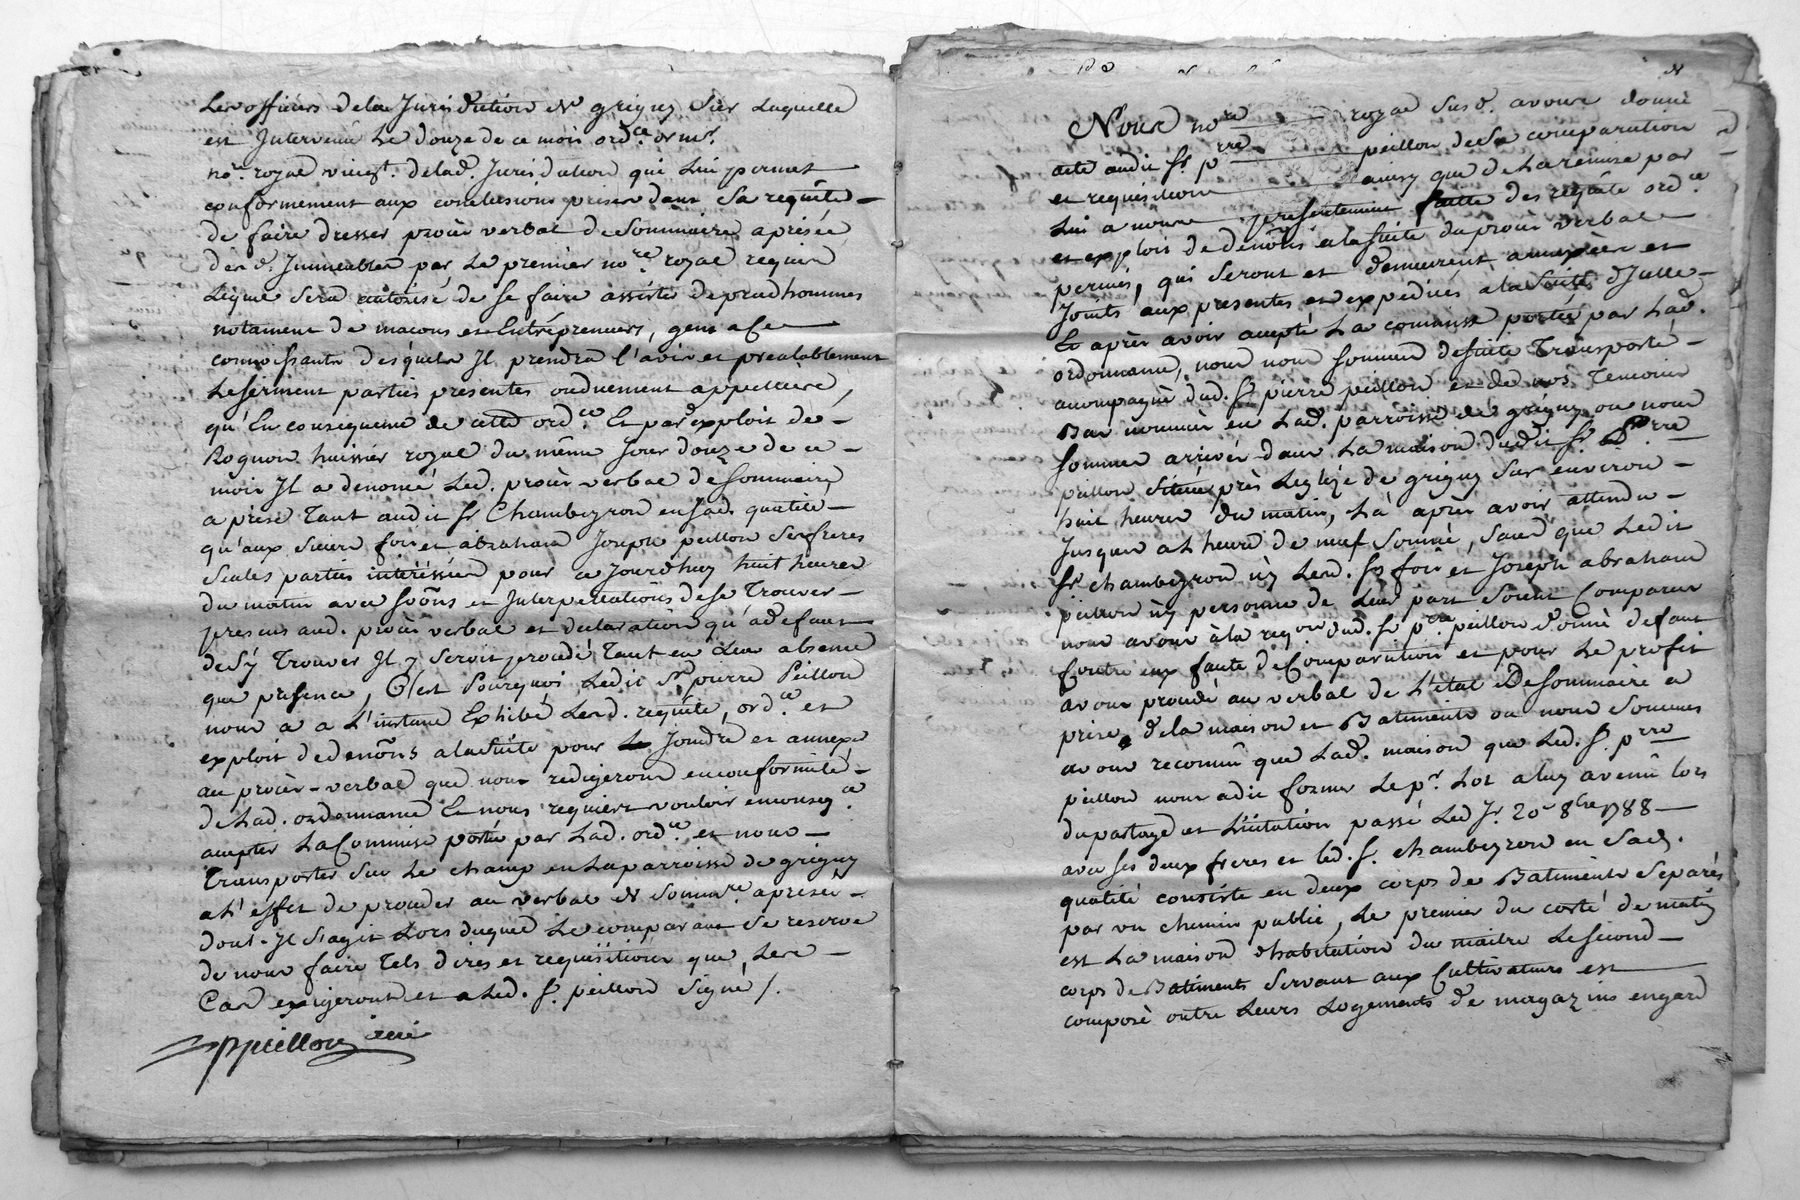 Les officiers de la Jurisdiction de grigny sur Laquelle
est Intervenüe Le douze de ce mois ord.ce de mr.
no.re royal viceg.t de lad. Jurisdiction qui Lui permet
conformement aux conclusions prises dans Sa requête
de faire dresser procès verbal de Sommaire aprisée
des d. Immeubles par Le premier no.re royal requis
Lequel sera autórisé de se faire assister de prudhommes
notament de maçons et Entrepreneurs, gens a ce
connoissants desquels Il prendra l'avis et prealablement
Le serment parties presentes ou duement appellées,
qu'En consequence de cette ord.ce Et par exploit de
Rognon huissier royal du même Jour douze de ce
mois Il a denoncé Led. procès verbal de Sommaire
aprisé tant audit Sr Chambeyron en sad. qualité
qu'aux sieurs foii et abraham Joseph peillon Ses freres
Seules parties intéréssées pour ce Jourdhuy huit heures
du matin avec soõns et Interpellations de se Trouver
presens aud. procès verbal et declaration qu'a defaut
de S'y Trouver Il y seroit procedé Tant en Leur absence
que presence, C'est Pourquoi Ledit Sr. pierre Peillon
nous a a L'instant Exhibé Lesd. requête, ord.ce et
exploit de denõns a la suite pour Joindre et annexé
au procès-verbal que nous redigerons en conformité
de Lad. ordonnance Et nous requiert vouloir en conseq.ce
accepter La Commise portée par Lad. ord.ce et nous
Transporter Sur Le champ en La parroisse de grigny
a L'effet de proceder au verbal de Somm.re aprisée
dont Il s'agit Lors duquel Le comparant Se reserve
de nous faire Tels dires et requisitions que Les
Cas exigeront et a Led. S. peillon Signé /.
ppeillon
Nous no.re royal Susd. avons donné
acte audit Sr. p.rre peillon de Sa comparution
et requisition ainsy que de La remise par
Lui a nous presentement faitte des requête ord.ce
et exploit de denõns a la suite du procès verbal
permis, qui Seront et demeurent annexées et
Joints aux presentes et expediées a la Suite d'Icelle
Et après avoir accepté La comise portée par Lad.
ordonnance, nous nous sommes de suite Transporté
accompagné dud. S. pierre peillon et de nos Temoins
Bas nommés en Lad. parroisse de grigny ou nous
sommes arrivés dans La maison dudit Sr. P.rre
peillon Située près L'eglise de grigny Sur environ
huit heures du matin, Là après avoir attendu
Jusques a L'heure de neuf Sonnée, sans que Ledit
Sr. chambeyron ny Lesd. Srs foii et Joseph abraham
peillon ny personne de Leur part Soient Comparus
nous avons à la req.on dud. S. p.rre peillon donné defaut
Contre eux faute de Comparution et pour Le profit
avons procedé au verbal de L'état De Sommaire a
prise de la maison et Batiments ou nous Sommes
avons reconnû que Lad. maison que Led. S. p.rre
peillon nous a dit former Le p.r Lot a luy avenû lors
du partage et Licitation passé Led Jr. 20 8bre 1788
avec ses deux freres et led. S. chambeyron en Sad.
qualité consiste en deux corps de Batiments Separés
par un chemin public, Le premier du costé de matin
est La maison d'habitation du maitre Le Second
corps de Batiments Servant aux Cultivateurs est
composé outre Leurs Logements de magazins engard